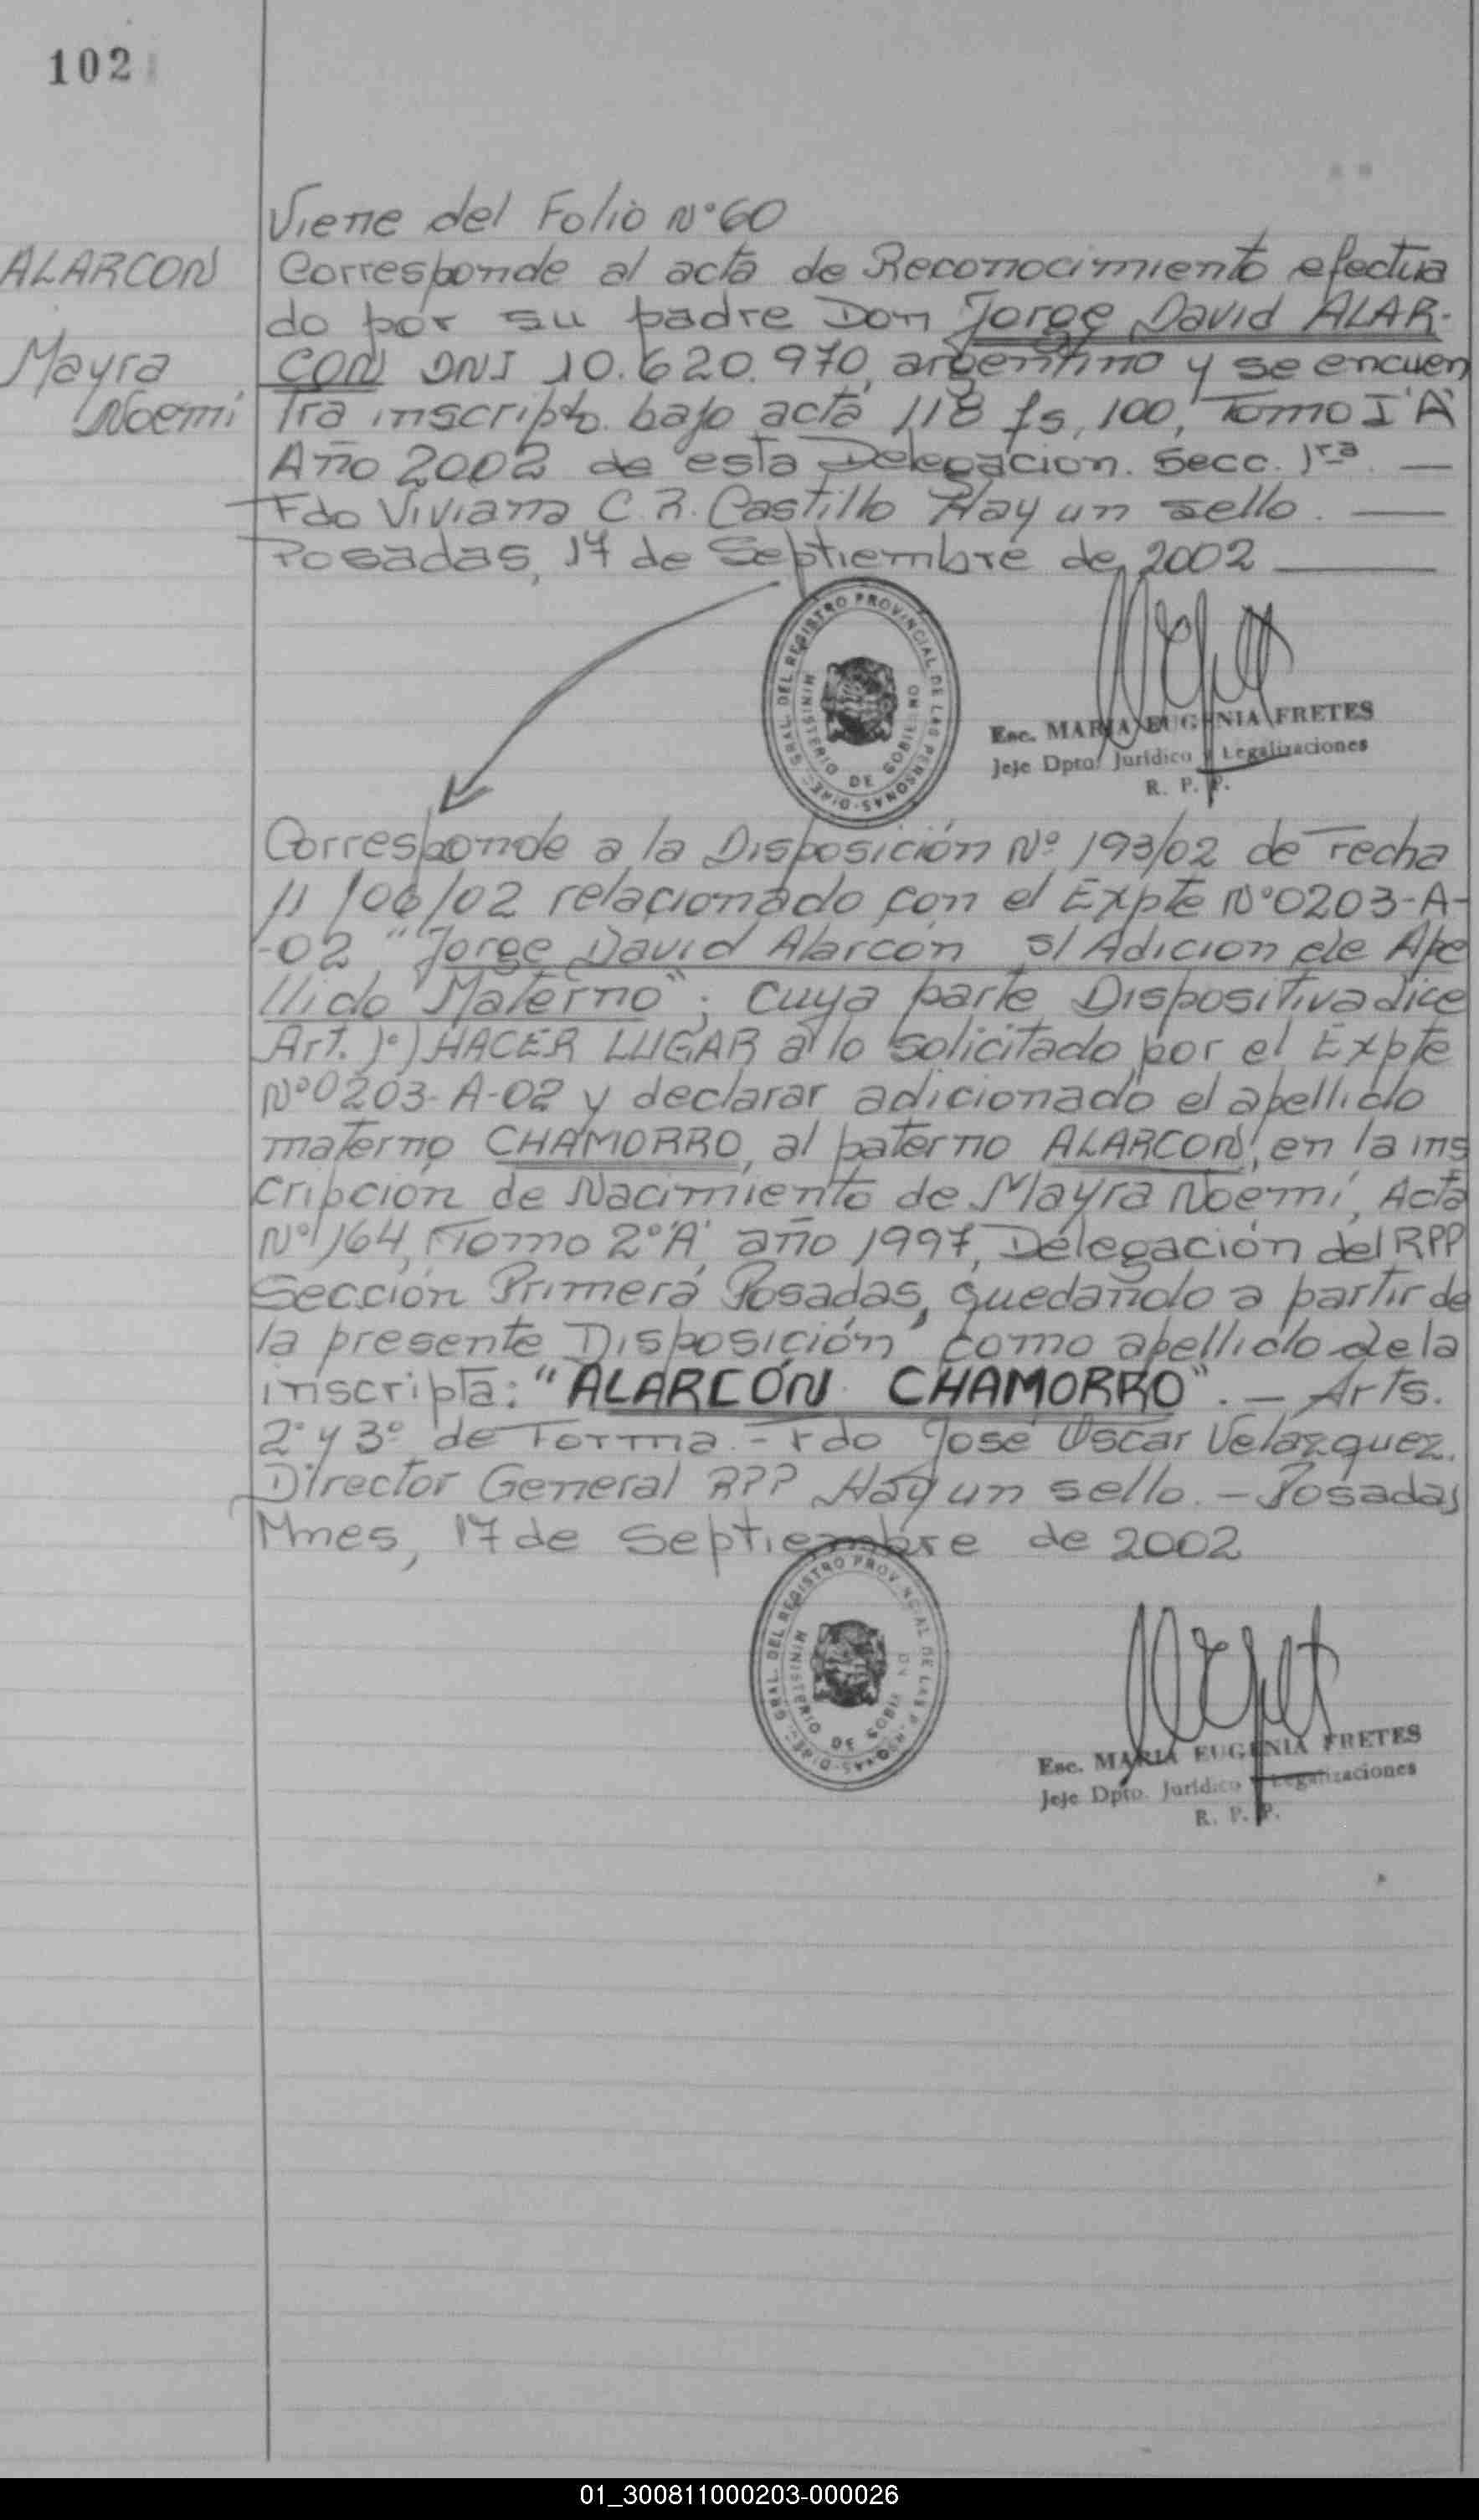 102
Viene del Folio Nº 60
ALARCON
Mayra
Noemí
Corresponde al acta de Reconocimiento efectua
do por su padre Don Jorge David ALAR-
CON DNI 10.620.970, argentino y se encuen
tra inscripto bajo acta 118 fs, 100, Tomo I "A"
Año 2002 de esta Delegacion. Secc. 1ra. —
Fdo Viviana C. R. Castillo Hay un sello. —
Posadas, 17 de Septiembre de 2002 —
DIREC. GRAL. DEL REGISTRO PROVINCIAL DE LAS PERSONAS
MINISTERIO DE GOBIERNO
Esc. MARIA EUGENIA FRETES
Jefe Dpto. Jurídico y Legalizaciones
R. P. P.
Corresponde a la Disposición Nº 193/02 de Fecha
11/06/02 relacionado con el Expte Nº 0203-A-
-02 "Jorge David Alarcón s/ Adicion de Ape
llido Materno"; cuya parte Dispositiva dice
Art. 1º) HACER LUGAR a lo solicitado por el Expte
Nº 0203-A-02 y declarar adicionado el apellido
materno CHAMORRO, al paterno ALARCON, en la ins
cripción de Nacimiento de Mayra Noemí, Acta
Nº 164, Tomo 2º "A", año 1997, Delegación del RPP
Sección Primera Posadas, quedando a partir de
la presente Disposición como apellido de la
inscripta: "ALARCÓN CHAMORRO". — Arts.
2º y 3º de Forma. - Fdo José Oscar Velazquez.
Director General RPP Hay un sello. — Posadas
Mnes, 17 de Septiembre de 2002
DIREC. GRAL. DEL REGISTRO PROVINCIAL DE LAS PERSONAS
MINISTERIO DE GOBIERNO
Esc. MARIA EUGENIA FRETES
Jefe Dpto. Jurídico y Legalizaciones
R. P. P.
01_300811000203-000026